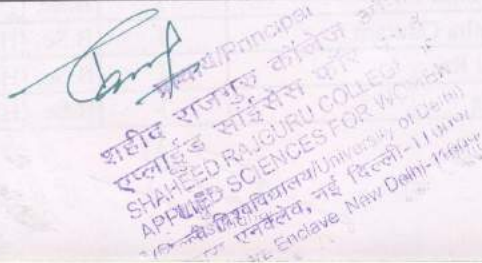 प्राचार्या/Principal
शहीद राजगुरु कॉलेज ऑफ
एप्लाईड साईंसेस फॉर
SHAHEED RAJGURU COLLEGE
APPLIED SCIENCES FOR WOMEN
विश्वविद्यालय/University of Delhi)
एनक्लेव, नई दिल्ली-
Enclave New Delhi-